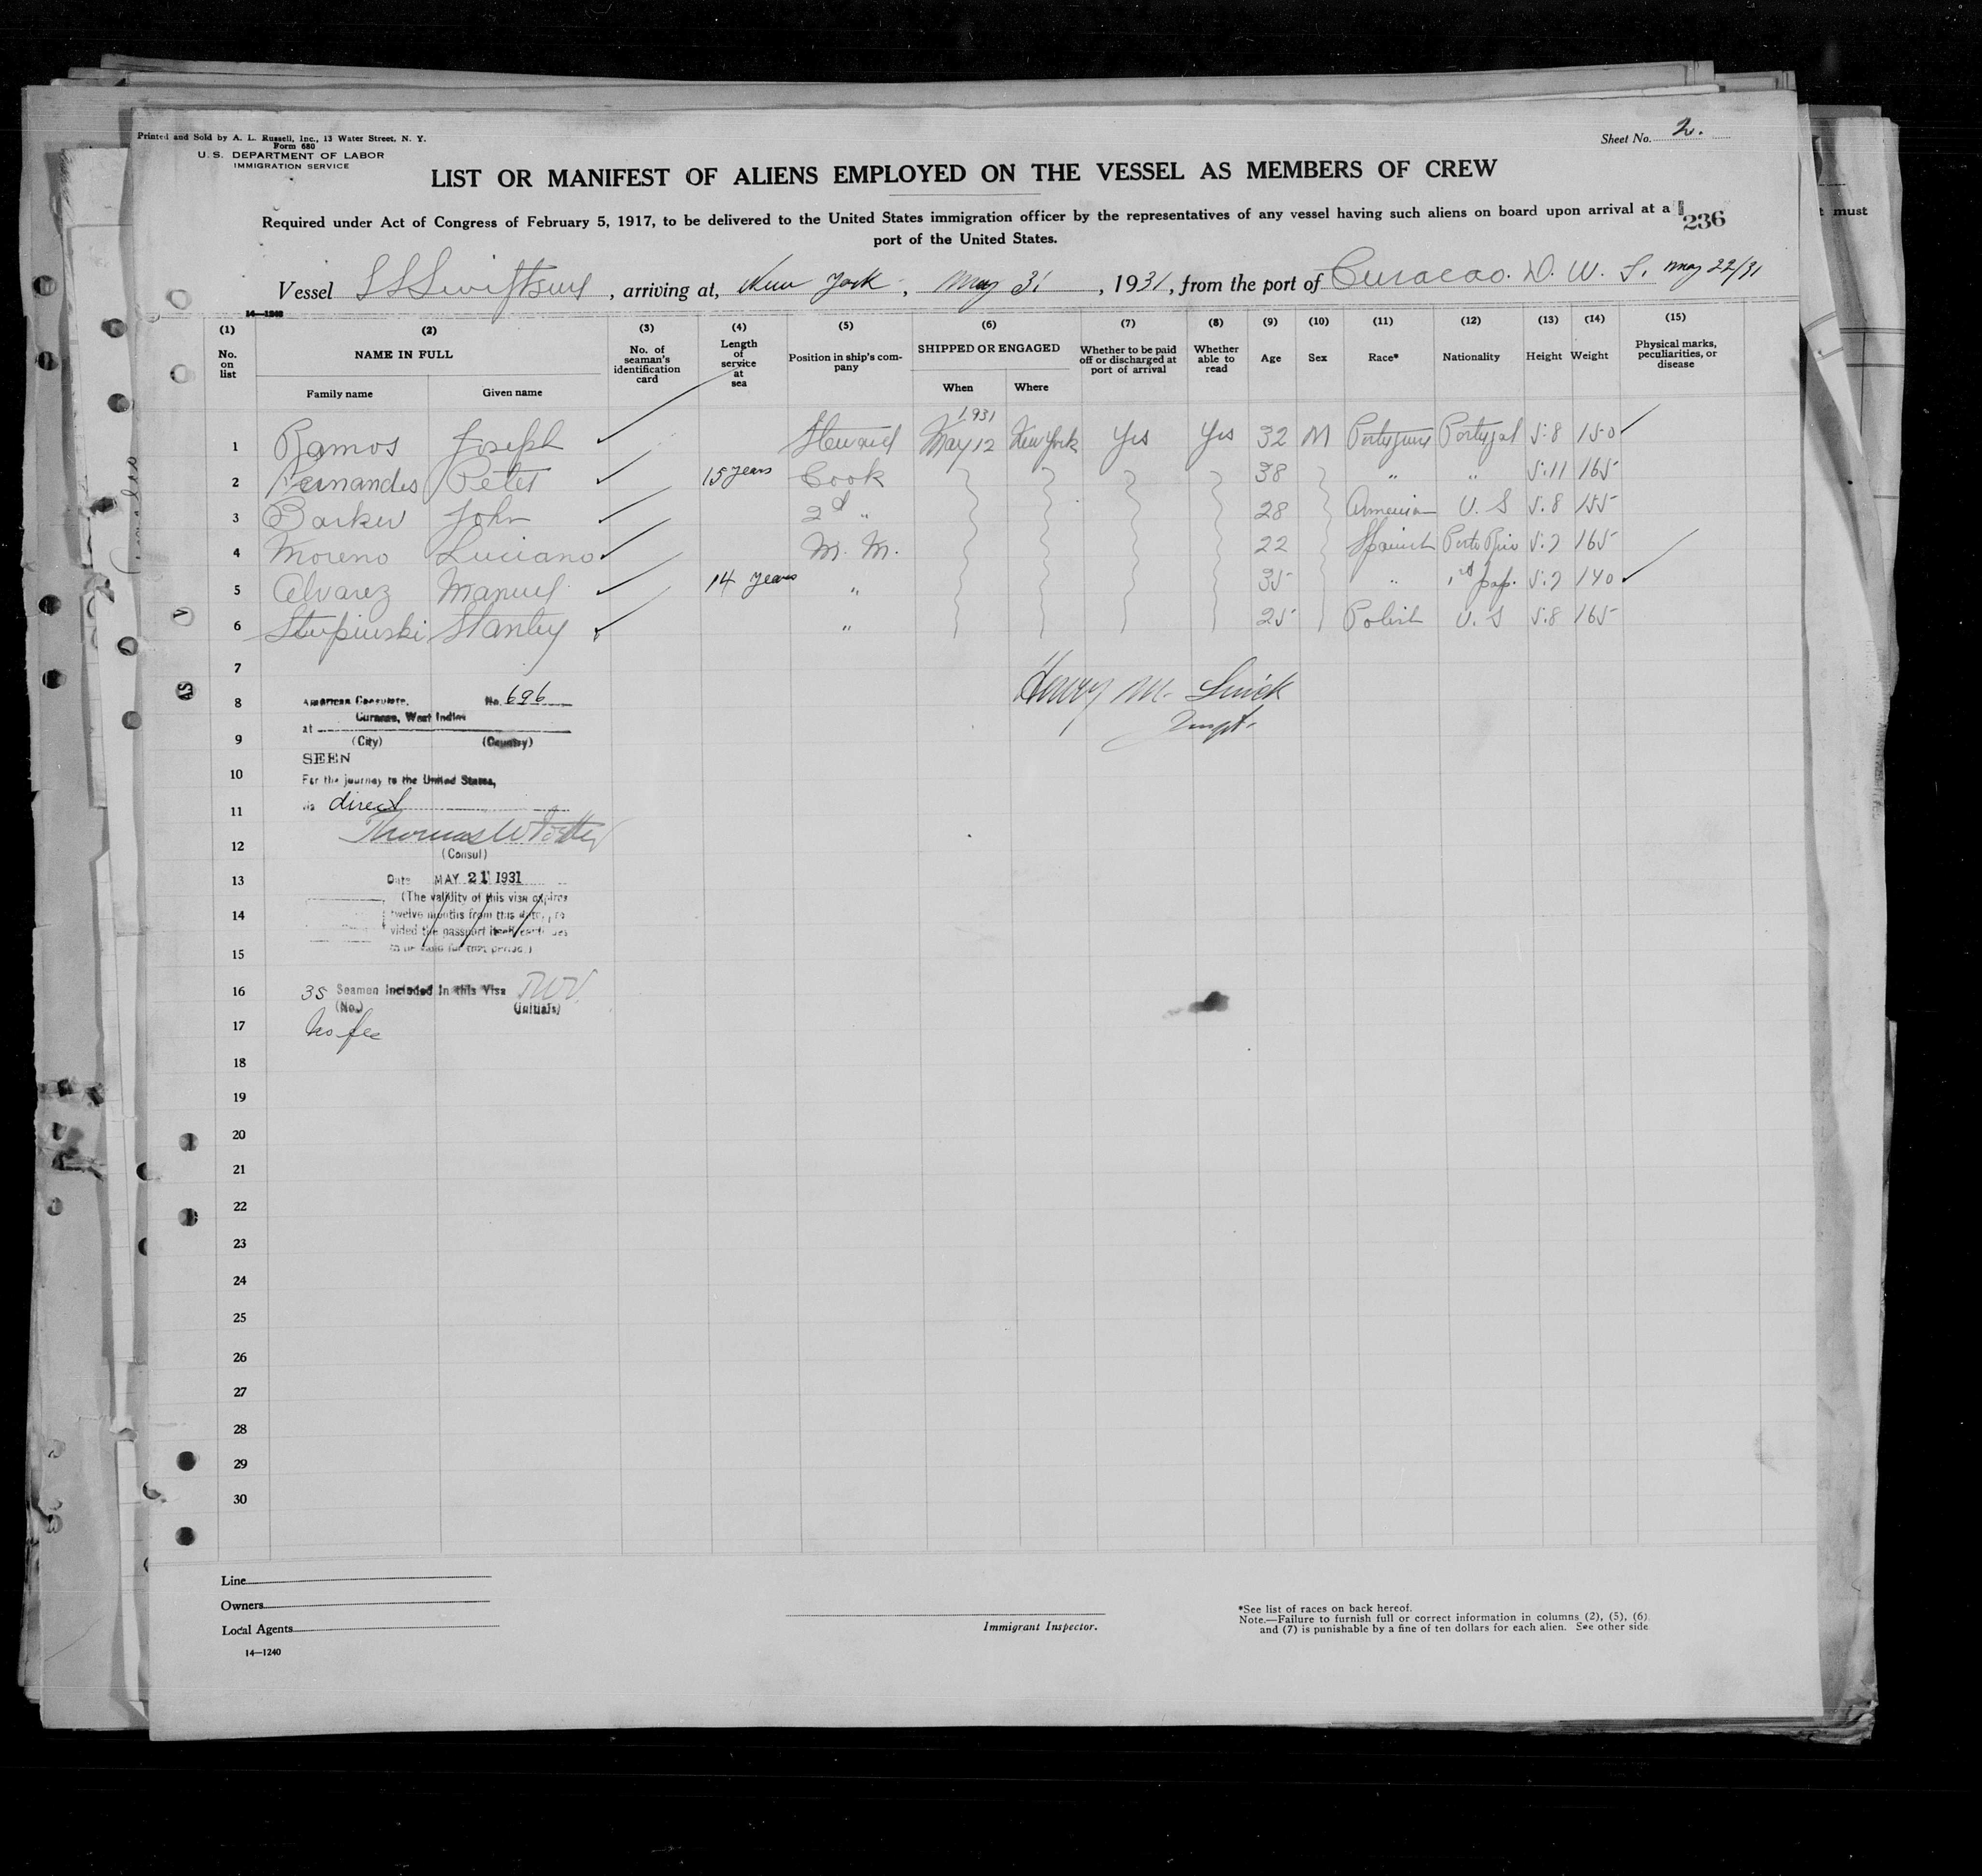 Printed and Sold by A. L. Russell, Inc., 13 Water Street, N. Y.
Form 680
U. S. DEPARTMENT OF LABOR
IMMIGRATION SERVICE
Sheet No. 2.
LIST OR MANIFEST OF ALIENS EMPLOYED ON THE VESSEL AS MEMBERS OF CREW
Required under Act of Congress of February 5, 1917, to be delivered to the United States immigration officer by the representatives of any vessel having such aliens on board upon arrival at a
port of the United States.
236
must
Vessel SS Swiftsure, arriving at, New York, May 31, 1931, from the port of Curacao. D. W. I. May 22/31
14—1240
(1) (2) (3) (4) (5) (6) (7) (8) (9) (10) (11) (12) (13) (14) (15)
No. on list NAME IN FULL Family name Given name No. of seaman's identification card Length of service at sea Position in ship's company SHIPPED OR ENGAGED When Where Whether to be paid off or discharged at port of arrival Whether able to read Age Sex Race* Nationality Height Weight Physical marks, peculiarities, or disease
1931
1 Ramos Joseph Steward May 12 New York Yes Yes 32 M Portuguese Portugal 5.8 150
2 Fernandes Peter 15 years Cook 38 " " 5.11 165
3 Barker John 2d " 28 Armenian U. S 5.8 155
4 Moreno Luciano M. M. 22 Spanish Porto Rico 5.7 165
5 Alvarez Manuel 14 years " 35 " 1st pap. 5.7 140
6 Stanley " 25 Polish U. S 5.8 165
7
8
9
10
11
12
13
14
15
16
17
18
19
20
21
22
23
24
25
26
27
28
29
30
Henry M.
Inspt.
American Consulate, No. 696
at Curacao, West Indies
(City) (Country)
SEEN
For the journey to the United States,
via direct
Thomas W.
(Consul)
Date MAY 21 1931
(The validity of this visa expires
twelve months from this date, provided
the passport itself continues
to be valid for that period.)
35 Seamen Included in this Visa
(No.) (Initials)
No fee
Line
Owners
Local Agents
14—1240
Immigrant Inspector.
*See list of races on back hereof.
Note.—Failure to furnish full or correct information in columns (2), (5), (6)
and (7) is punishable by a fine of ten dollars for each alien. See other side